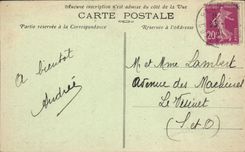 Aucune inscription n'est admise du côté de la Vue
CARTE POSTALE
Partie réservée à la Correspondance
Réservée à l'Adresse
20c
A bientôt
Andrée
M et Mme Lambert
Avenue des
Le Vésinet
(S et O)